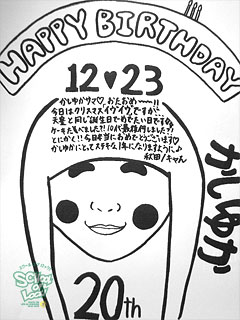 HAPPY BIRTHDAY
12♥23
かしゆかサマ♡おたおめ〜!!
今日はクリスマスイヴイヴですが…
天皇と同じ誕生日でめでたい日ですね
ケーキた食べました?!10代最後何しました??
とにかく!!今日本当におめでとうございます
かしゆかにとってステキな1年になりますように♪
秋田ノキャん
かしゆか
20th
School of Lock!